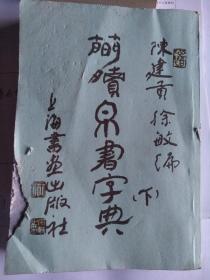 陳建貢徐敏編
簡牘帛書字典
(下)
上海書畫出版社